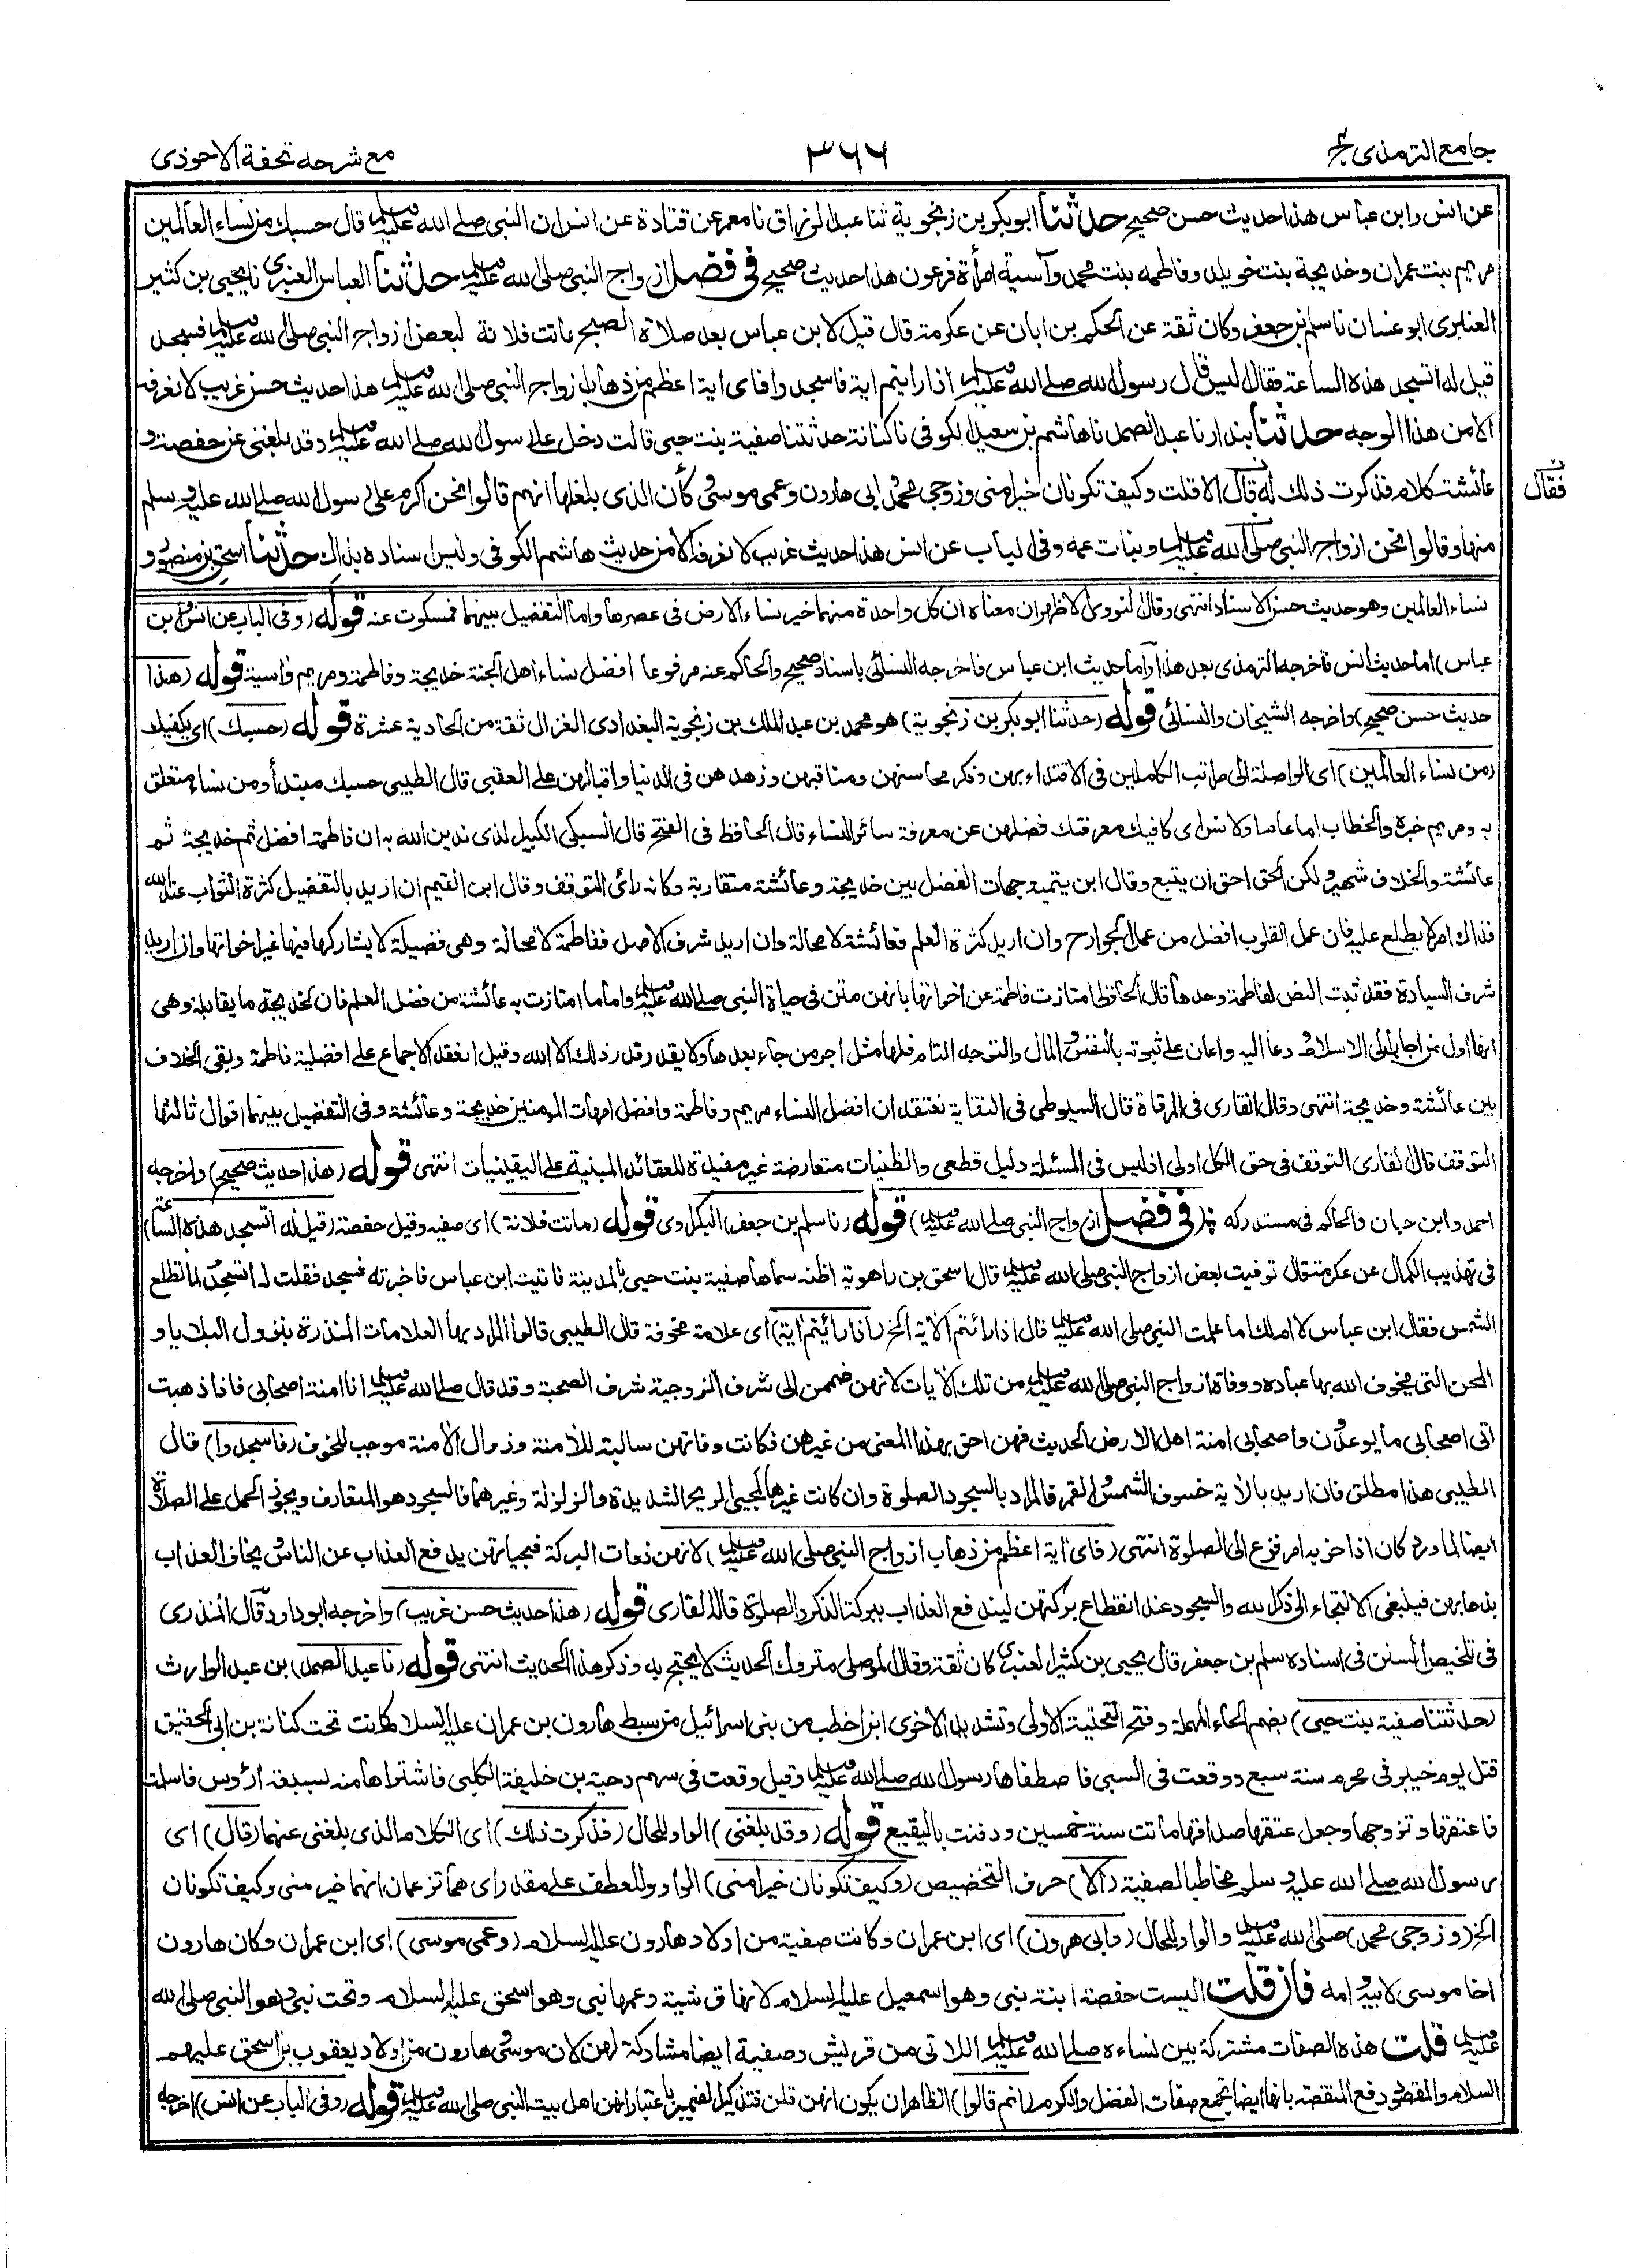 جامع الترمذى ج٤
٣٦٦
مع شرحه تحفة الاحوذى
عن انس وابن عباس هذا حديث حسن صحيح حدثنا ابو بكر بن زنجوية ثنا عبد الرزاق نا معمر عن قتادة عن انس ان النبى صلى الله عليه وسلم قال حسبك من نساء العالمين
مريم بنت عمران وخديجة بنت خويلد وفاطمة بنت محمد وآسية امرأة فرعون هذا حديث صحيح فى فضل ازواج النبى صلى الله عليه وسلم حدثنا العباس العنبرى نا يحيى بن كثير
العنبرى ابو غسان نا سلم بن جعفر وكان ثقة عن الحكم بن ابان عن عكرمة قال قيل لابن عباس بعد صلاة الصبح ماتت فلانة لبعض ازواج النبى صلى الله عليه وسلم فسجد
قيل له اتسجد هذه الساعة فقال ليس قال رسول الله صلى الله عليه وسلم اذا رايتم اية فاسجدوا فاى اية اعظم من ذهاب ازواج النبى صلى الله عليه وسلم هذا حديث حسن غريب لا نعرفه
الا من هذا الوجه حدثنا بندار نا عبد الصمد نا هاشم بن سعيد الكوفى نا كنانة حدثتنا صفية بنت حيى قالت دخل على رسول الله صلى الله عليه وسلم وقد بلغنى عن حفصة و
عائشة كلام فذكرت ذلك له قال الا قلت وكيف تكونان خيرا منى وزوجى محمد وابى هارون وعمى موسى وكأن الذى بلغها انهم قالوا نحن اكرم على رسول الله صلى الله عليه وسلم
فقال
منها وقالوا نحن ازواج النبى صلى الله عليه وسلم وبنات عمه وفى الباب عن انس هذا حديث غريب لا نعرفه الا من حديث هاشم الكوفى وليس اسناده بذاك حدثنا اسحق بن منصور و
نساء العالمين وهو حديث حسن الاسناد انتهى وقال النووى الاظهر ان معناه ان كل واحدة منهما خير نساء الارض فى عصرها واما التفضيل بينهما فمسكوت عنه قوله (وفى الباب عن انس وابن
عباس) اما حديث انس فاخرجه الترمذى بعد هذا واما حديث ابن عباس فاخرجه النسائى باسناد صحيح والحاكم عنه مرفوعا افضل نساء اهل الجنة خديجة وفاطمة ومريم واسية قوله (هذا
حديث حسن صحيح) واخرجه الشيخان والنسائى قوله (حدثنا ابو بكر بن زنجوية) هو محمد بن عبد الملك بن زنجوية البغدادى الغزال ثقة من الحادية عشرة قوله (حسبك) اى يكفيك
(من نساء العالمين) اى الواصلة الى مراتب الكاملين فى الاقتداء بهن وذكر محاسنهن ومناقبهن وزهدهن فى الدنيا واقبالهن على العقبى قال الطيبى حسبك مبتدأ ومن نساء متعلق
به ومريم خبره والخطاب اما عام او لانس اى كافيك معرفتك فضلهن عن معرفة سائر النساء قال الحافظ فى الفتح قال السبكى الكبير الذى ندين الله به ان فاطمة افضل ثم خديجة ثم
عائشة والخلاف شهير ولكن الحق احق ان يتبع وقال ابن تيمية جهات الفضل بين خديجة وعائشة متقاربة وكانه رأى التوقف وقال ابن القيم ان اريد بالتفضيل كثرة الثواب عند الله
فذاك امر لا يطلع عليه فان عمل القلوب افضل من عمل الجوارح وان اريد كثرة العلم فعائشة لا محالة وان اريد شرف الاصل ففاطمة لا محالة وهى فضيلة لا يشاركها فيها غير اخواتها وان اريد
شرف السيادة فقد ثبت النص لفاطمة وحدها قال الحافظ امتازت فاطمة عن اخواتها بانهن متن فى حياة النبى صلى الله عليه وسلم واما ما امتازت به عائشة من فضل العلم فان لخديجة ما يقابله وهى
انها اول من اجاب الى الاسلام و دعا اليه واعان على ثبوته بالنفس والمال والتوجه التام فلها مثل اجر من جاء بعدها ولا يقدر قدر ذلك الا الله وقيل انعقد الاجماع على افضلية فاطمة وبقى الخلاف
بين عائشة وخديجة انتهى وقال القارى فى المرقاة قال السيوطى فى النقاية نعتقد ان افضل النساء مريم وفاطمة وافضل امهات المومنين خديجة وعائشة وفى التفضيل بينهما اقوال ثالثها
التوقف قال القارى التوقف فى حق الكل اولى اذ ليس فى المسئلة دليل قطعى والظنيات متعارضة غير مفيدة للعقائد المبنية على اليقينيات انتهى قوله (هذا حديث صحيح) واخرجه
احمد وابن حبان والحاكم فى مستدركه (فى فضل ازواج النبى صلى الله عليه وسلم) قوله (نا سلم بن جعفر) البكراوى قوله (ماتت فلانة) اى صفية وقيل حفصة (قيل له اتسجد هذه الساعة)
فى تهذيب الكمال عن عكرمة قال توفيت بعض ازواج النبى صلى الله عليه وسلم قال اسحق بن راهوية اظنه سماها صفية بنت حيى بالمدينة فاتيت ابن عباس فاخبرته فسجد فقلت له اتسجد ولما تطلع
الشمس فقال ابن عباس لا ام لك اما علمت النبى صلى الله عليه وسلم قال اذا رائتم الاية الخ (اذا رأيتم اية) اى علامة مخوفة قال الطيبى قالوا المراد بها العلامات المنذرة بنزول البلايا و
المحن التى يخوف الله بها عباده ووفاة ازواج النبى صلى الله عليه وسلم من تلك الايات لانهن ضممن الى شرف الزوجية شرف الصحبة وقد قال صلى الله عليه وسلم انا امنة اصحابى فاذا ذهبت
اتى اصحابى ما يوعدون واصحابى امنة اهل الارض الحديث فهن احق بهذا المعنى من غيرهن فكانت وفاتهن سالبة للامنة وزوال الامنة موجب للخوف (فاسجدوا) قال
الطيبى هذا مطلق فان اريد بالاية خسوف الشمس والقمر فالمراد بالسجود الصلوة وان كانت غيرها كمجىء الريح الشديدة والزلزلة وغيرهما فالسجود هو المتعارف ويجوز الحمل على الصلاة
ايضا لما ورد كان اذا حزبه امر فزع الى الصلوة انتهى (فاى اية اعظم من ذهاب ازواج النبى صلى الله عليه وسلم) لانهن ذوات البركة فبحياتهن يدفع العذاب عن الناس ويخاف العذاب
بذهابهن فينبغى الالتجاء الى ذكر الله والسجود عند انقطاع بركتهن ليندفع العذاب ببركة الذكر والصلوة قاله القارى قوله (هذا حديث حسن غريب) واخرجه ابو داود قال المنذرى
فى تلخيص السنن فى اسناده سلم بن جعفر قال يحيى بن كثير العنبرى كان ثقة وقال الموصلى متروك الحديث لا يحتج به وذكر هذا الحديث انتهى قوله (نا عبد الصمد) بن عبد الوارث
(حدثتنا صفية بنت حيى) بضم الحاء المهملة وفتح التحتية الاولى وتشديد الاخرى ابن اخطب من بنى اسرائيل من سبط هارون بن عمران عليه السلام كانت تحت كنانة بن ابى الحقيق
قتل يوم خيبر فى محرم سنة سبع ووقعت فى السبى فاصطفاها رسول الله صلى الله عليه وسلم وقيل وقعت فى سهم دحية بن خليفة الكلبى فاشتراها منه بسبعة ارؤس فاسلمت
فاعتقها وتزوجها وجعل عتقها صداقها ماتت سنة خمسين ودفنت بالبقيع قوله (وقد بلغنى) الواو للحال (فذكرت ذلك) اى الكلام الذى بلغنى عنهما (قال) اى
رسول الله صلى الله عليه وسلم مخاطبا لصفية (الا) حرف التخضيض (وكيف تكونان خيرا منى) الواو للعطف على مقدر اى هما تزعمان انهما خير منى وكيف تكونان
الخ (وزوجى محمد) صلى الله عليه وسلم والواو للحال (وابى هرون) اى ابن عمران وكانت صفية من اولاد هارون عليه السلام (وعمى موسى) اى ابن عمران وكان هارون
اخا موسى لابيه وامه فان قلت اليست حفصة ابنة نبى وهو اسمعيل عليه السلام لانها قرشية وعمها نبى وهو اسحق عليه السلام وتحت نبى وهو النبى صلى الله
عليه وسلم قلت هذه الصفات مشتركة بين نساءه صلى الله عليه وسلم اللاتى من قريش وصفية ايضا مشاركة لهن لان موسى وهارون من اولاد يعقوب بن اسحق عليهم
السلام والمقصود دفع المنقصة بانها ايضا تجمع صفات الفضل والكرم (انهم قالوا) الظاهر ان يكون انهن قلن فتذكير الضمير باعتبار انهن اهل بيت النبى صلى الله عليه وسلم قوله (وفى الباب عن انس) اخرجه